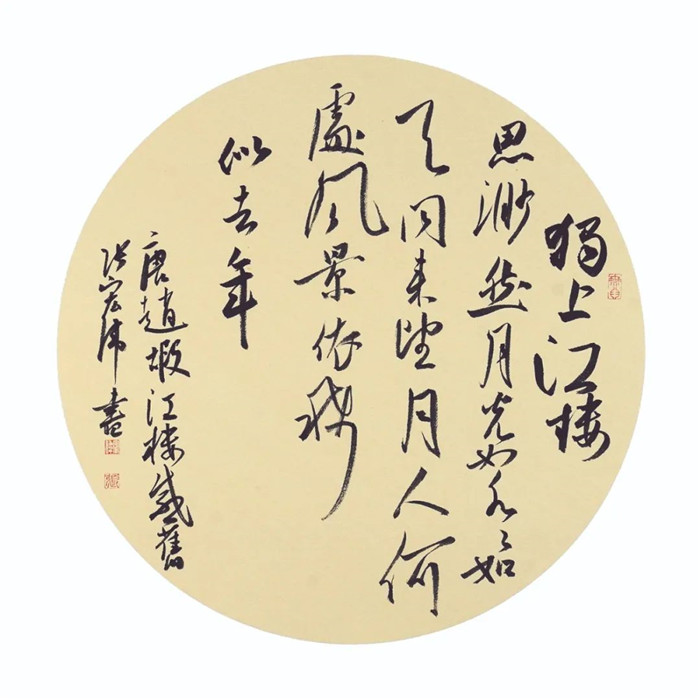 獨上江樓
思渺然月光如水々如
天同来望月人何
處風景依稀
似去年
唐趙嘏江樓感舊
張宏偉書